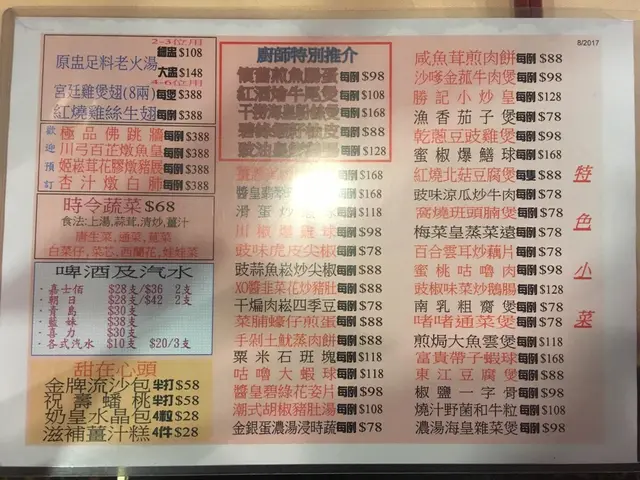 8/2017
2-3位用
原盅足料老火湯
細盅$108
大盅$148
4-6位用
宮廷雞煲翅(8兩)每堡$388
紅燒雞絲生翅每例$388
歡迎預訂
極品佛跳牆每例$388
川弓百芷燉魚皇每例$388
姬崧茸花膠燉豬𦟌每例$388
杏汁燉白肺每例$388
時令蔬菜$68
食法:上湯,蒜茸,清炒,薑汁
唐生菜,通菜,菠菜
白菜仔,菜芯,西蘭花,娃娃菜
啤酒及汽水
·嘉士伯 $28支/$36 2支
·朝日 $28支/$42 2支
·青島 $30支
·藍妹 $38支
·喜力 $30支
·各式汽水 $10支 $20/3支
甜在心頭
金牌流沙包半打$58
祝壽蟠桃半打$58
奶皇水晶包4粒$28
滋補薑汁糕4件$28
廚師特別推介
煎魚腸蛋每例$98
紅酒燴牛尾煲每例$108
干撈海皇粉絲煲每例$168
每例$88
豉油皇每例$128
每例$168
醬皇每例$168
滑蛋炒每例$118
川椒雞球每例$98
豉味虎皮尖椒每例$78
豉蒜魚崧炒尖椒每例$88
XO醬韭菜花炒豬肚每例$88
干煸肉崧四季豆每例$78
菜脯蠔仔煎蛋每例$88
手剁土魷蒸肉餅每例$88
粟米石班塊每例$118
咕嚕大蝦球每例$118
醬皇碧綠花姿片每例$98
潮式胡椒豬肚湯每例$108
金銀蛋濃湯浸時蔬每例$78
咸魚茸煎肉餅每例$88
沙嗲金菰牛肉煲每例$98
勝記小炒皇每例$128
漁香茄子煲每例$78
乾蔥豆豉雞煲每例$98
蜜椒爆鱔球每例$168
紅燒北菇豆腐煲每隻$88
豉味涼瓜炒牛肉每例$78
窩燒班頭腩煲每例$78
梅菜皇蒸菜遠每例$78
百合雲耳炒藕片每例$78
蜜桃咕嚕肉每例$98
豉椒味菜炒鵝腸每例$128
南乳粗齋煲每例$78
啫啫通菜煲每例$78
煎焗大魚雲煲每例$118
富貴帶子蝦球每例$168
東江豆腐煲每例$88
椒鹽一字骨每例$98
燒汁野菌和牛粒每例$108
濃湯海皇雜菜煲每例$98
特色小菜